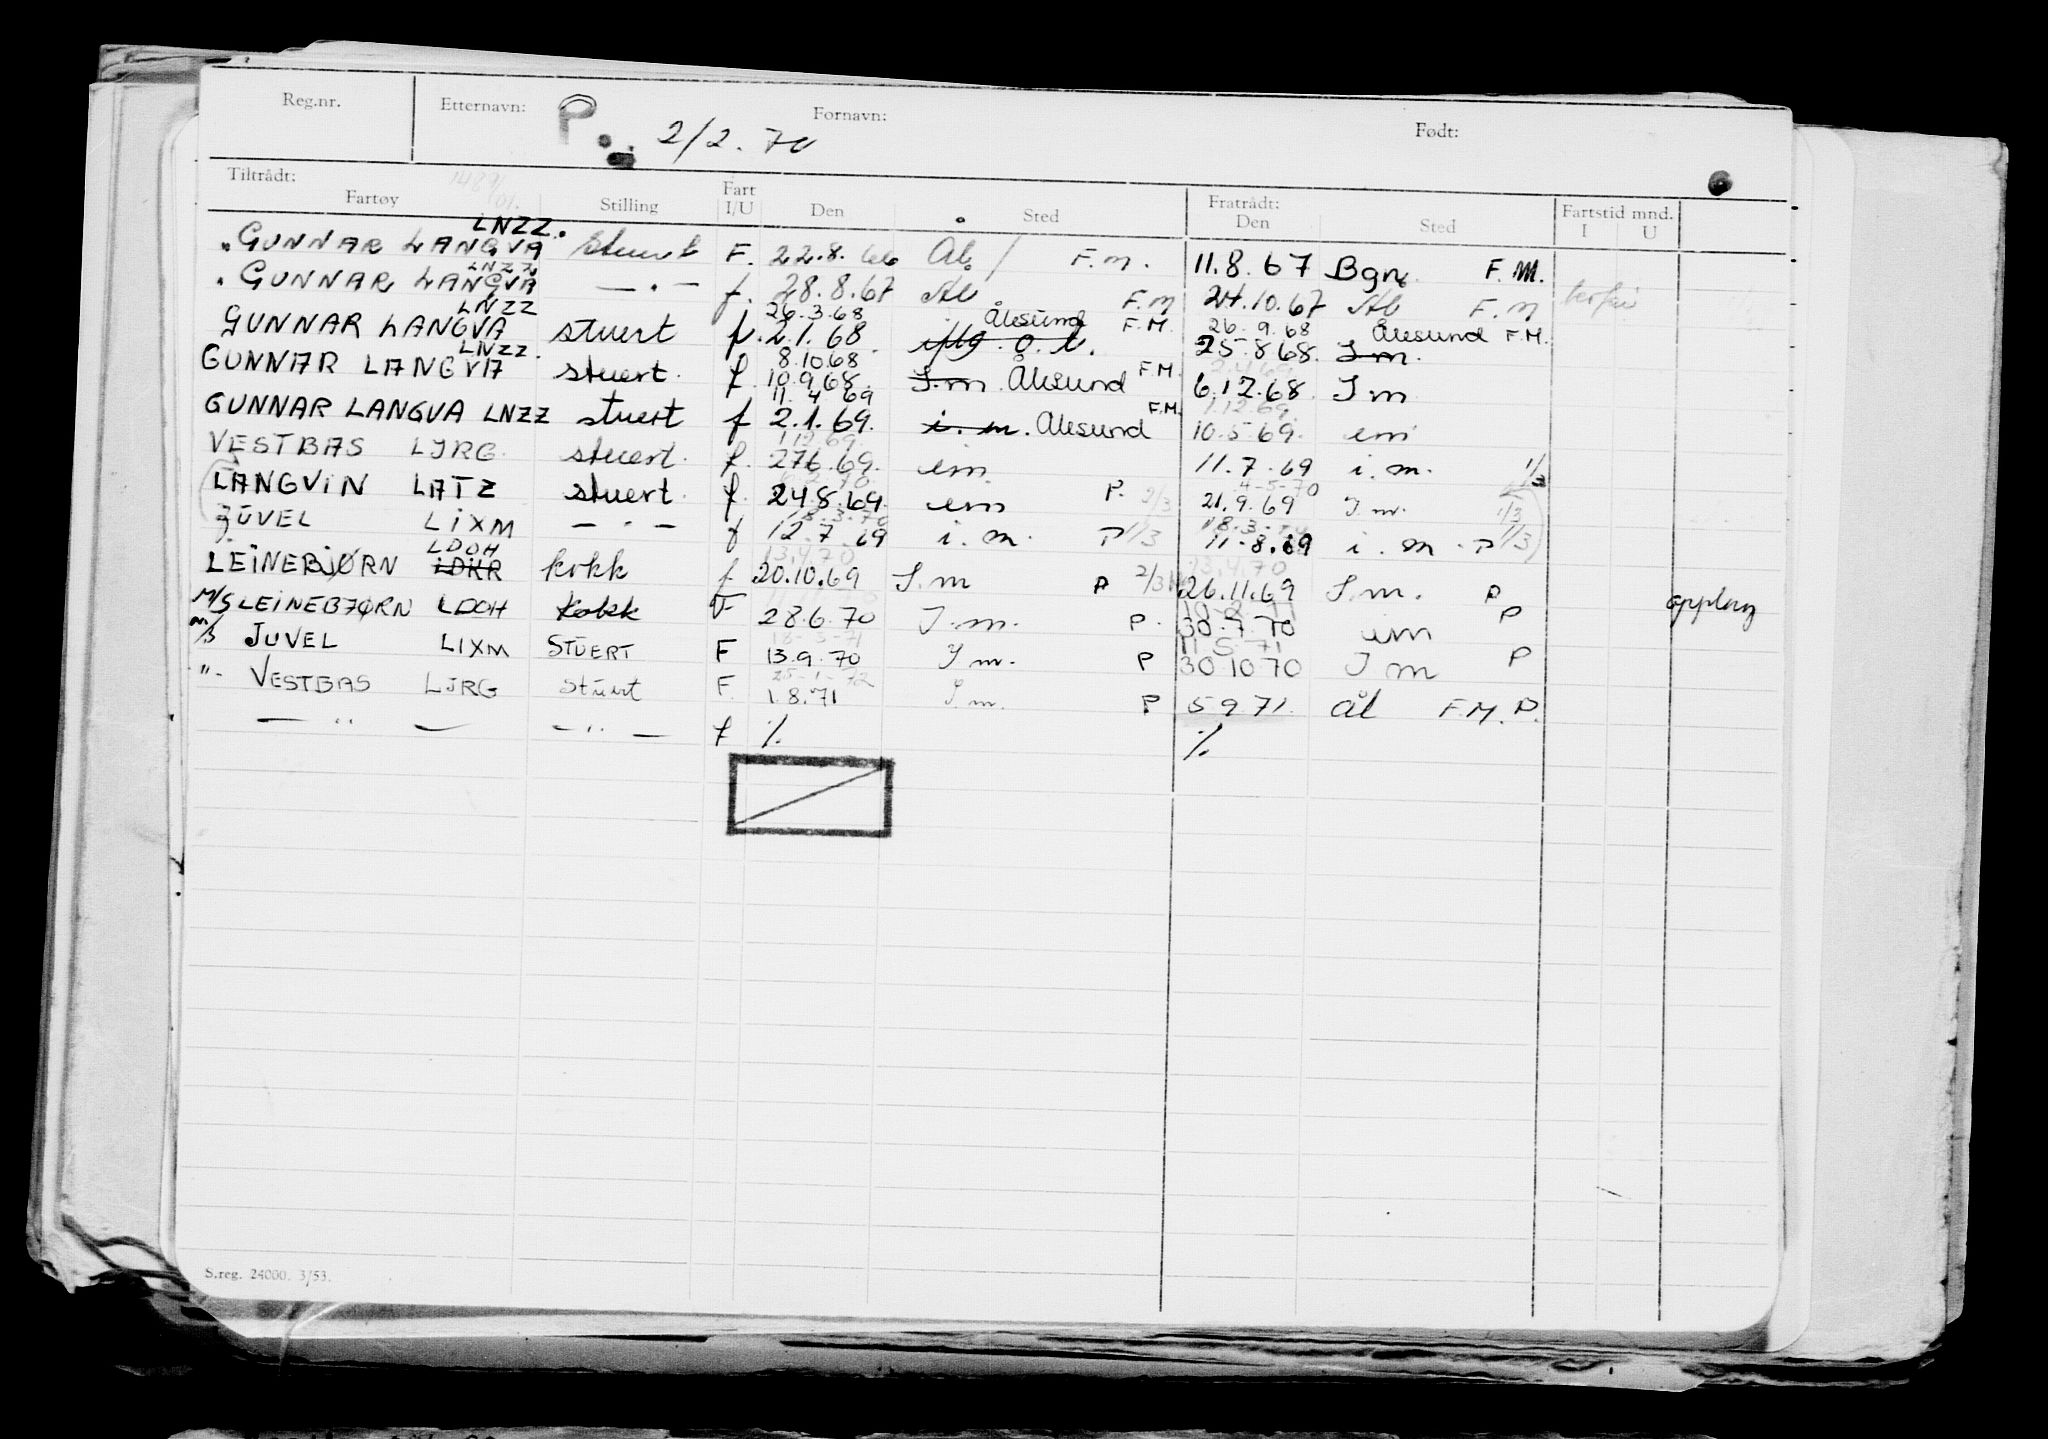 Reg.nr. Etternavn: P. 2/2.70 Fornavn: Født:
Tiltrådt: Fartøy Stilling Fart I/U Den Sted Fratrådt: Den Sted Fartstid mnd. I U
LNZZ.
GUNNAR LANGVA stuert F. 22.8.66 Ål. / F.M. 11.8.67 Bgn. F.M.
LNZZ
GUNNAR LANGVA — " — f. 28.8.67 Ål F.M 24.10.67 Ål F.M
LNZZ 26.3.68 Ålesund F.M. 26.9.68 Ålesund F.M.
GUNNAR LANGVA stuert f. 2.1.68 25.8.68. I.m.
LNZZ. 8.10.68
GUNNAR LANGVA stuert. f 10.9.68. I.m. Ålesund F.M. 6.12.68 I m
11.4.69 1.12.69.
GUNNAR LANGVA LNZZ stuert f 2.1.69. i.m. Ålesund F.M. 10.5.69. em
1.12.69.
VESTBAS LJRG. stuert. f. 27.6.69. im. 11.7.69 i.m. 1/3
4-5-70
LANGVIN LATZ stuert. f. 24.8.69. em P. 2/3 21.9.69 I.m. 1/3
18.3.70
JUVEL LIXM — " — f 12.7.69 i.m. P 1/3 11.8.69 i.m. P 1/3
LDOH 13.4.70 23.4.70
LEINEBJØRN LDKR kokk f 20.10.69 I.m P 2/3 26.11.69 I.m. P
M/S LEINEBJØRN LDOH Kokk F 28.6.70 I.m. P. 30.7.70 im P opplag
18-3-71 11.5.71
M/S JUVEL LIXM STUERT F 13.9.70 I m. P 30 10 70 I m P
25-1-72
-"- VESTBAS LJRG stuert F. 1.8.71 I.m. P 5 9 71. Ål F.M. P.
— " — — " — f %. %.
S.reg. 24000. 3/53.